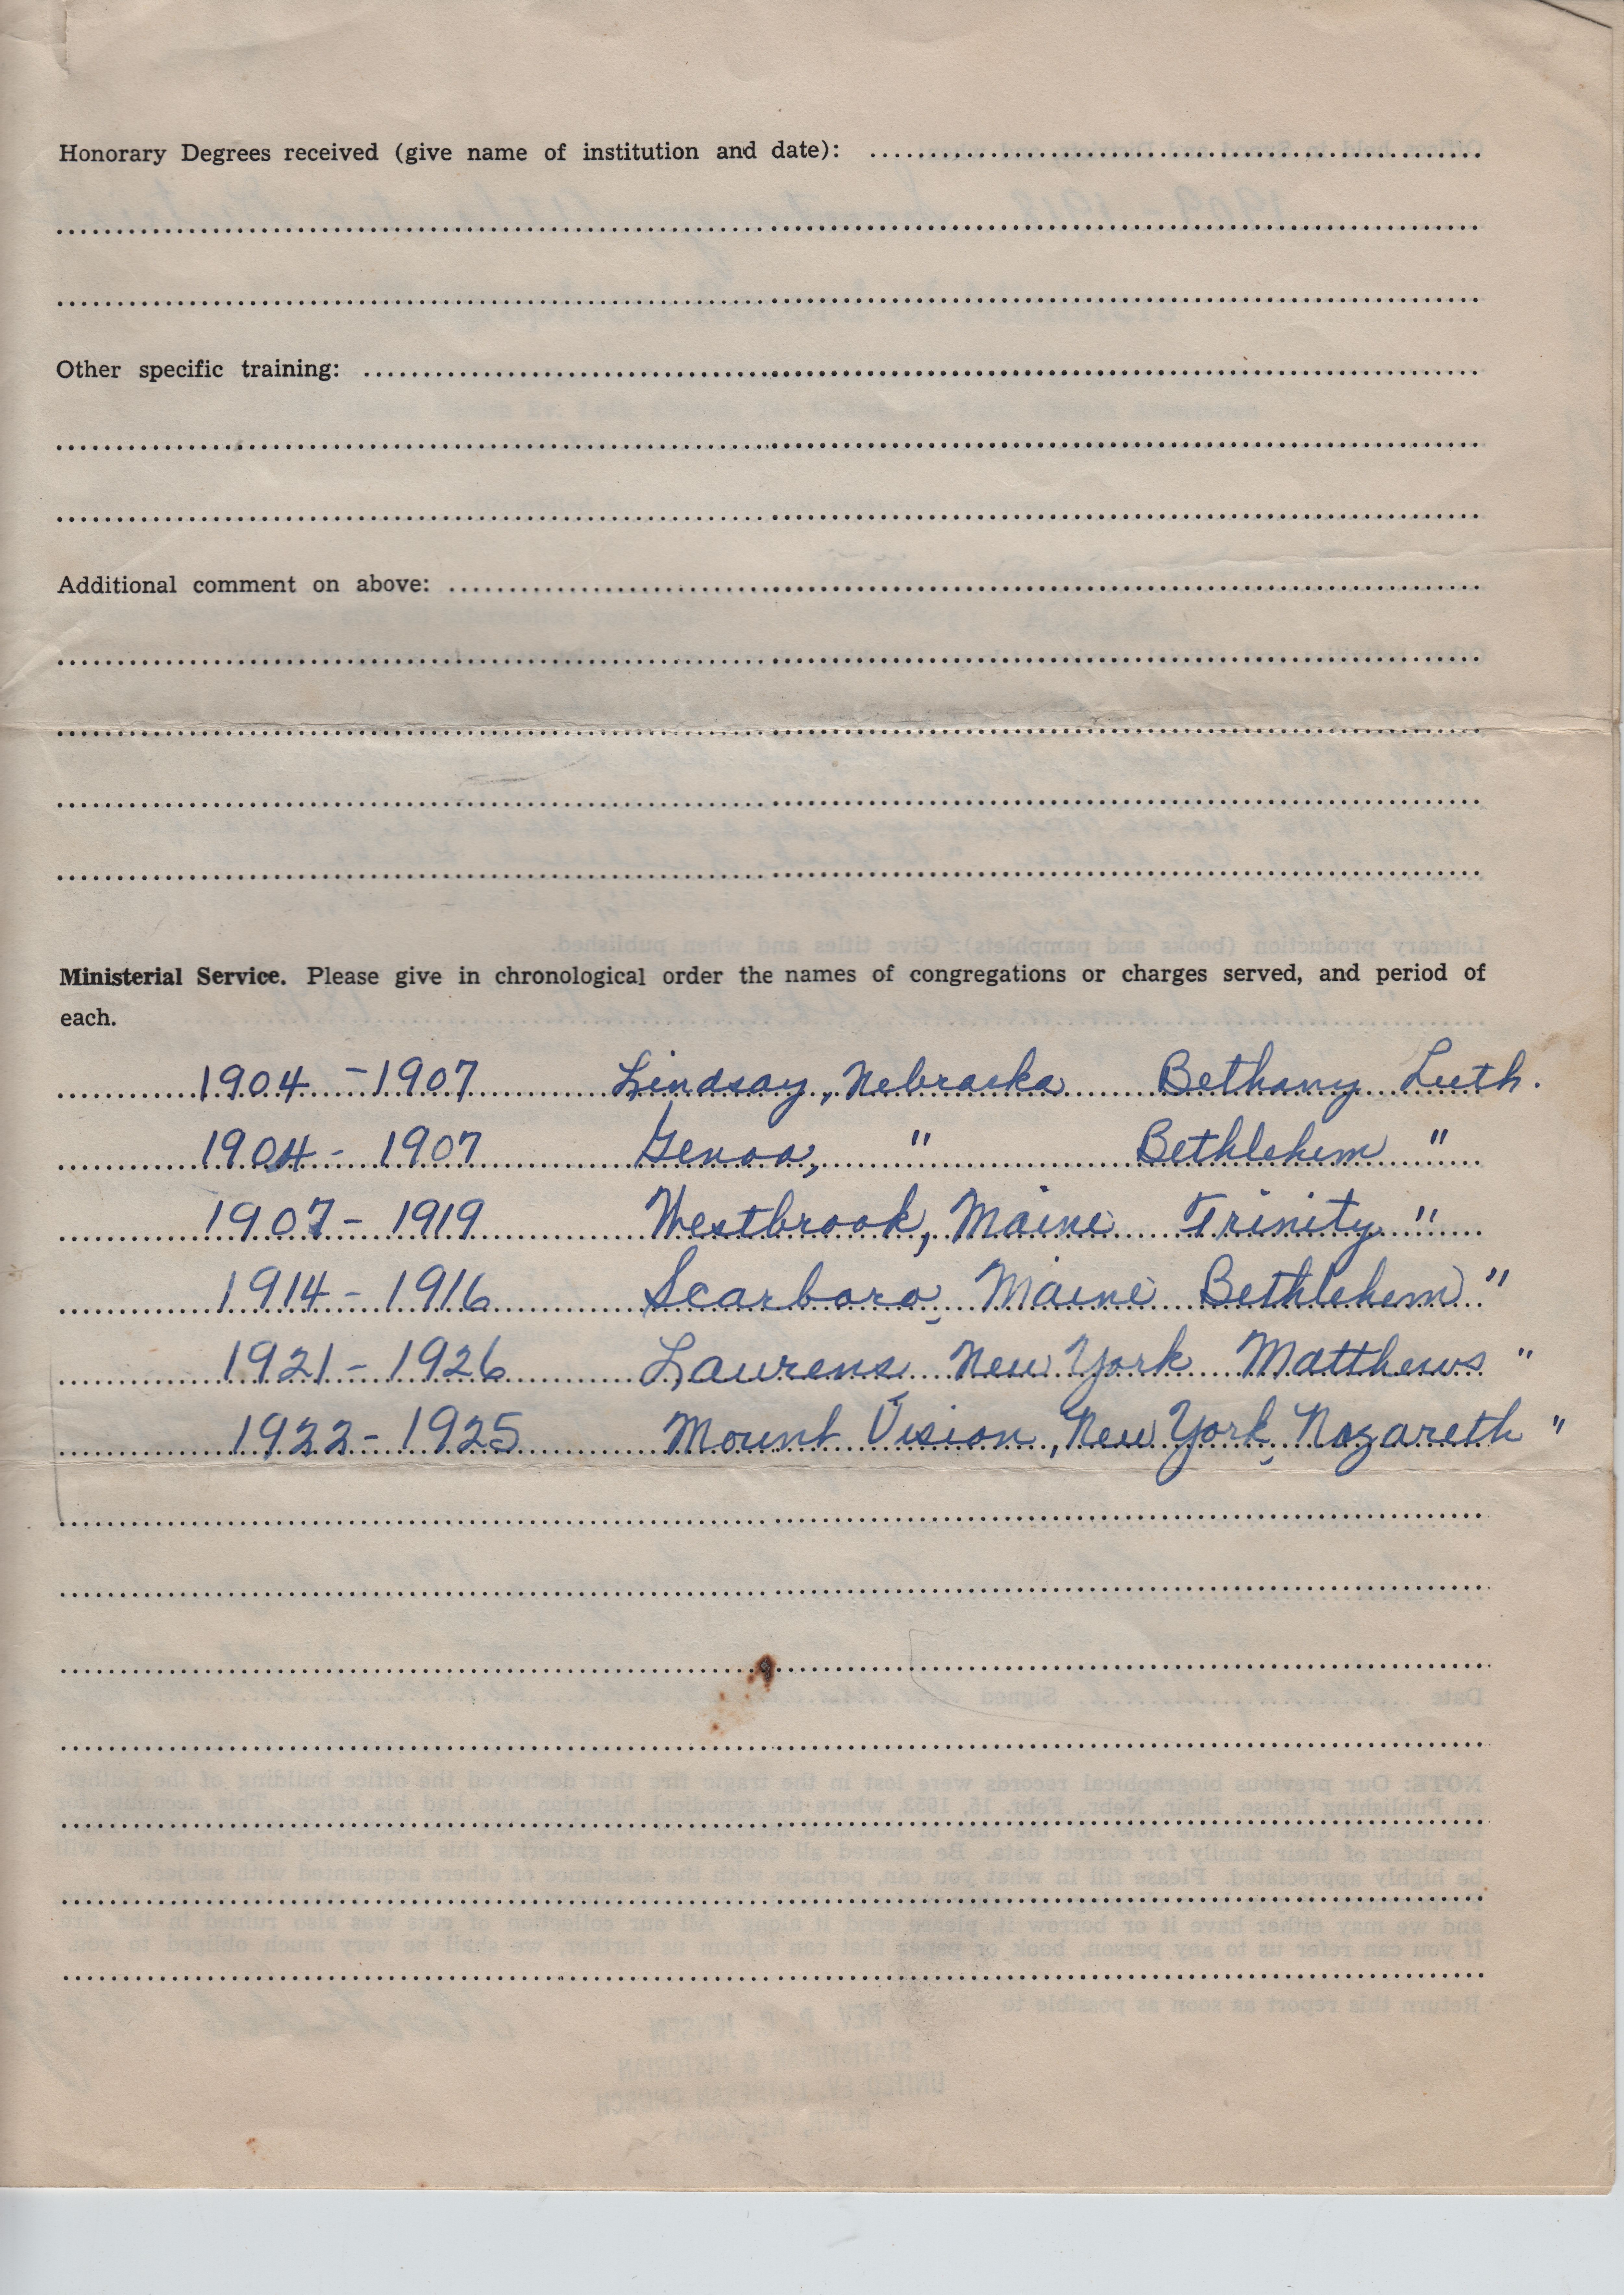 Honorary Degrees received (give name of institution and date):
Other specific training:
Additional comment on above:
Ministerial Service. Please give in chronological order the names of congregations or charges served, and period of
each.
1904 - 1907 Lindsay, Nebraska Bethany Luth.
1904 - 1907 Genoa, " Bethlehem "
1907 - 1919 Westbrook, Maine Trinity "
1914 - 1916 Scarboro, Maine Bethlehem "
1921 - 1926 Laurens New York Matthews "
1922 - 1925 Mount Vision, New York, Nazareth "